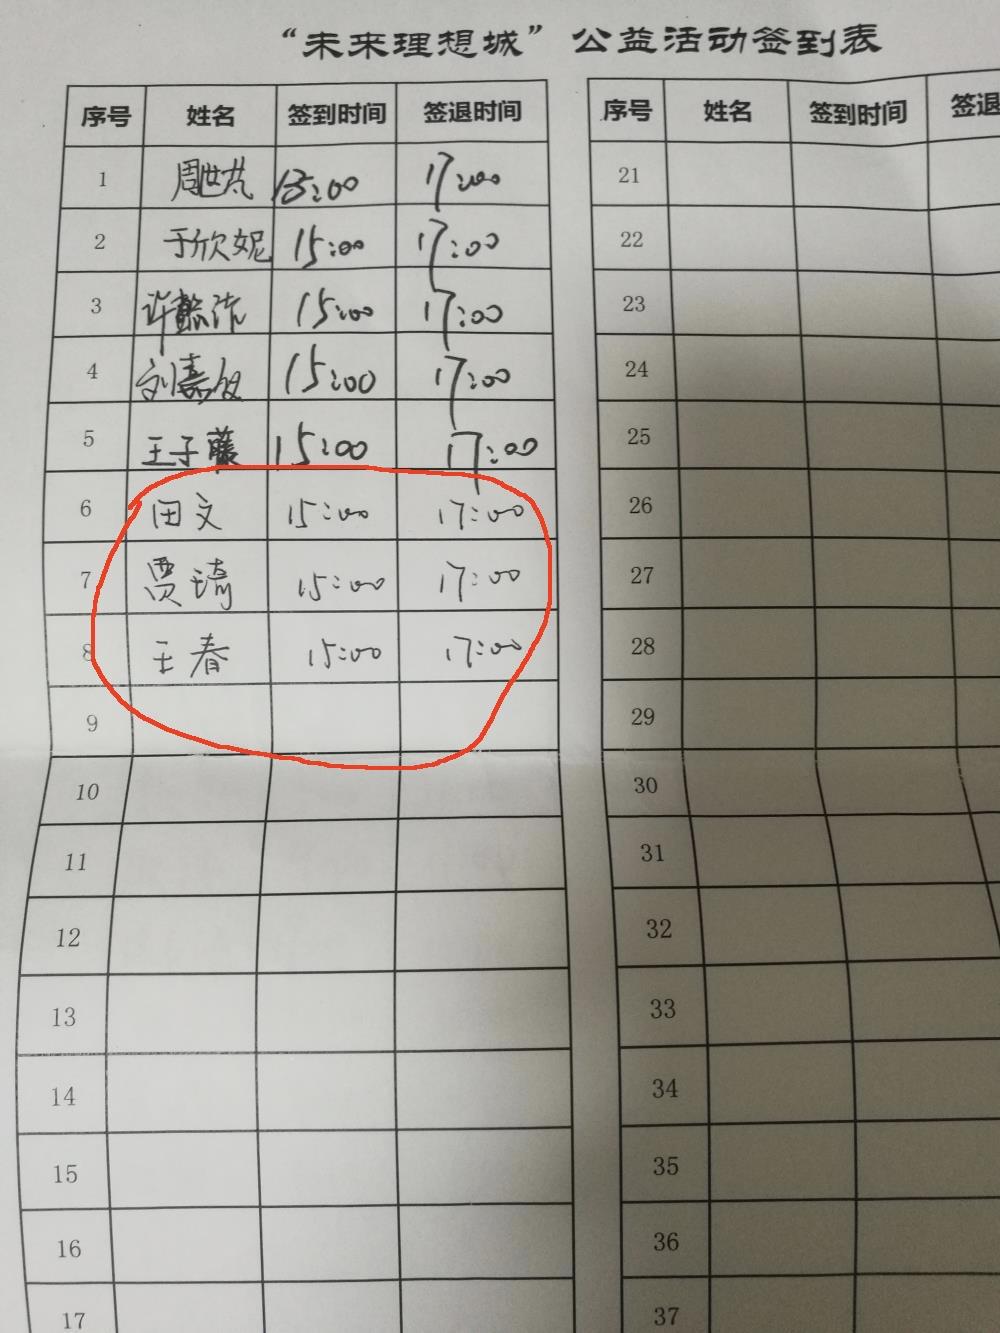 “未来理想城”公益活动签到表
序号 姓名 签到时间 签退时间
1 15:00 17:00
2 于欣妮 15:00 17:00
3 许懿 15:00 17:00
4 刘嘉 15:00 17:00
5 王子藤 15:00 17:00
6 田文 15:00 17:00
7 贾琦 15:00 17:00
8 王春 15:00 17:00
9
10
11
12
13
14
15
16
17
序号 姓名 签到时间 签退
21
22
23
24
25
26
27
28
29
30
31
32
33
34
35
36
37